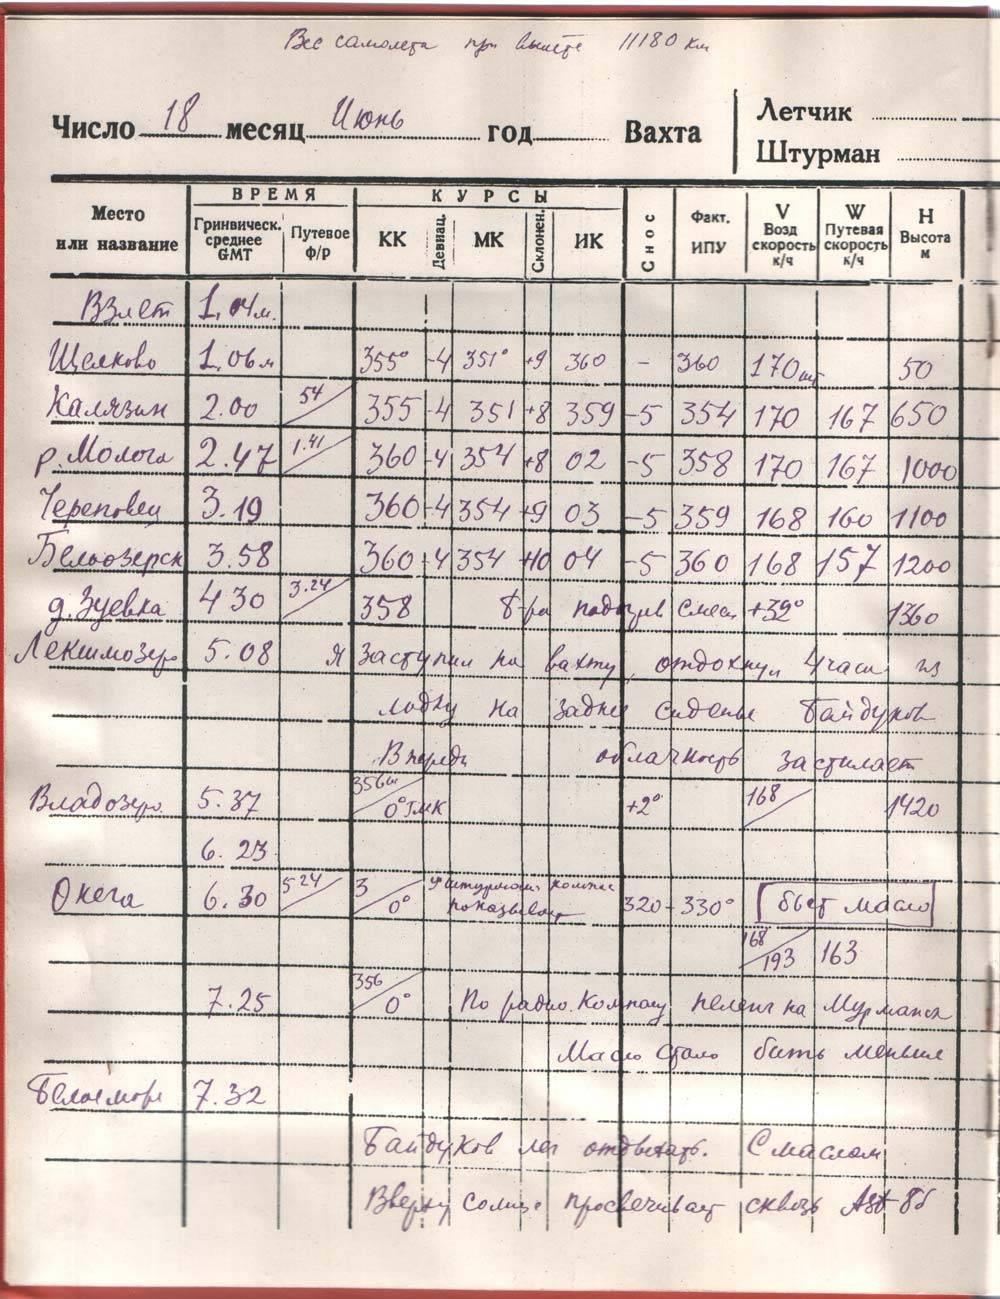 Вес самолета при вылете 11180 км
Число 18 месяц Июнь год Вахта
Летчик
Штурман
Место или название
ВРЕМЯ
Гринвическ. среднее GMT
Путевое ф/р
КУРСЫ
КК
Девиац.
МК
Склонен.
ИК
Снос
Факт. ИПУ
V Возд скорость к/ч
W Путевая скорость к/ч
H Высота м
Взлет 1.04м.
Щелково 1.06м 355° -4 351° +9 360 - 360 170 50
Калязин 2.00 54 355 -4 351 +8 359 -5 354 170 167 650
р. Молога 2.47 1.41 360 -4 354 +8 02 -5 358 170 167 1000
Череповец 3.19 360 -4 354 +9 03 -5 359 168 160 1100
Белоозерск 3.58 360 -4 354 +10 04 -5 360 168 157 1200
д. Зуевка 4 30 3.24 358 т-ра подогрев смеси +39° 1360
Лекшмозеро 5.08 Я заступил на вахту, отдохнул 4 часа из
лодку на заднее сиденье Байдуков
Впереди облачность застилает
Владозеро 5.37 356 0° ГМК +2° 168 1420
6.23
Онега 6.30 5 24 3 0° Штурмана компас показывает 320 - 330° бьет масло
168 193 163
7.25 356 0° По радио компасу пеленг на Мурманск
Масло стало бить меньше
Белое море 7.32
Байдуков лег отдыхать. С маслом
Вверху солнце просвечивает сквозь Ast